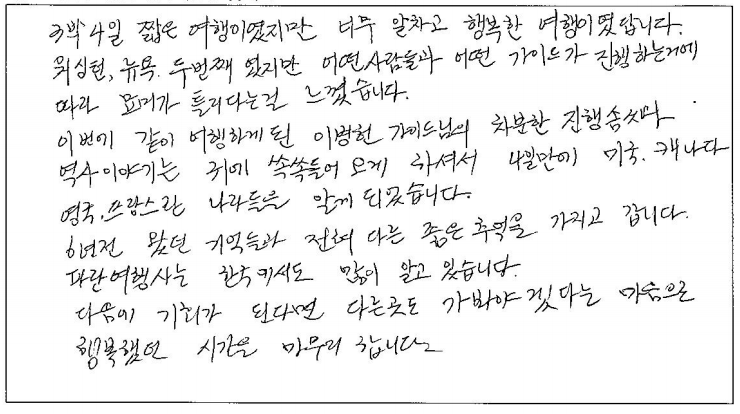 3박4일 짧은 여행이였지만 너무 알차고 행복한 여행이였답니다.
워싱턴, 뉴욕. 두번째 였지만 어떤사람들과 어떤 가이드가 진행하는거에
따라 묘미가 틀리다는걸 느꼈습니다.
이번에 같이 여행하게 된 이병헌 가이드님의 차분한 진행솜씨와
역사이야기는 귀에 쏙쏙들어 오게 하셔서 4일만에 미국. 캐나다
영국. 프랑스란 나라들을 알게 되었습니다.
6년전 왔던 기억들과 전혀 다른 좋은 추억을 가지고 갑니다.
파란여행사는 한국에서도 많이 알고 있습니다.
다음에 기회가 된다면 다른곳도 가봐야 겠다는 마음으로
행복했던 시간을 마무리 합니다